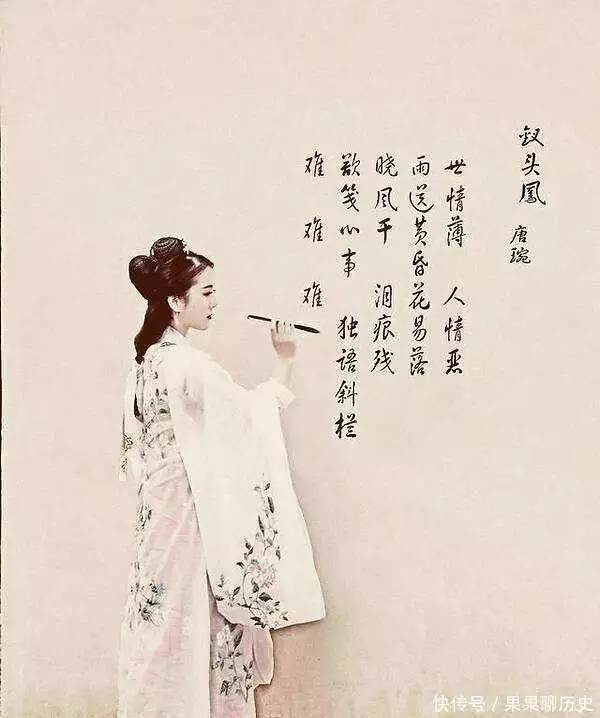 钗头凤
唐琬
世情薄 人情恶
雨送黄昏花易落
晓风干 泪痕残
欲笺心事 独语斜栏
难 难 难
快传号 / 果果聊历史